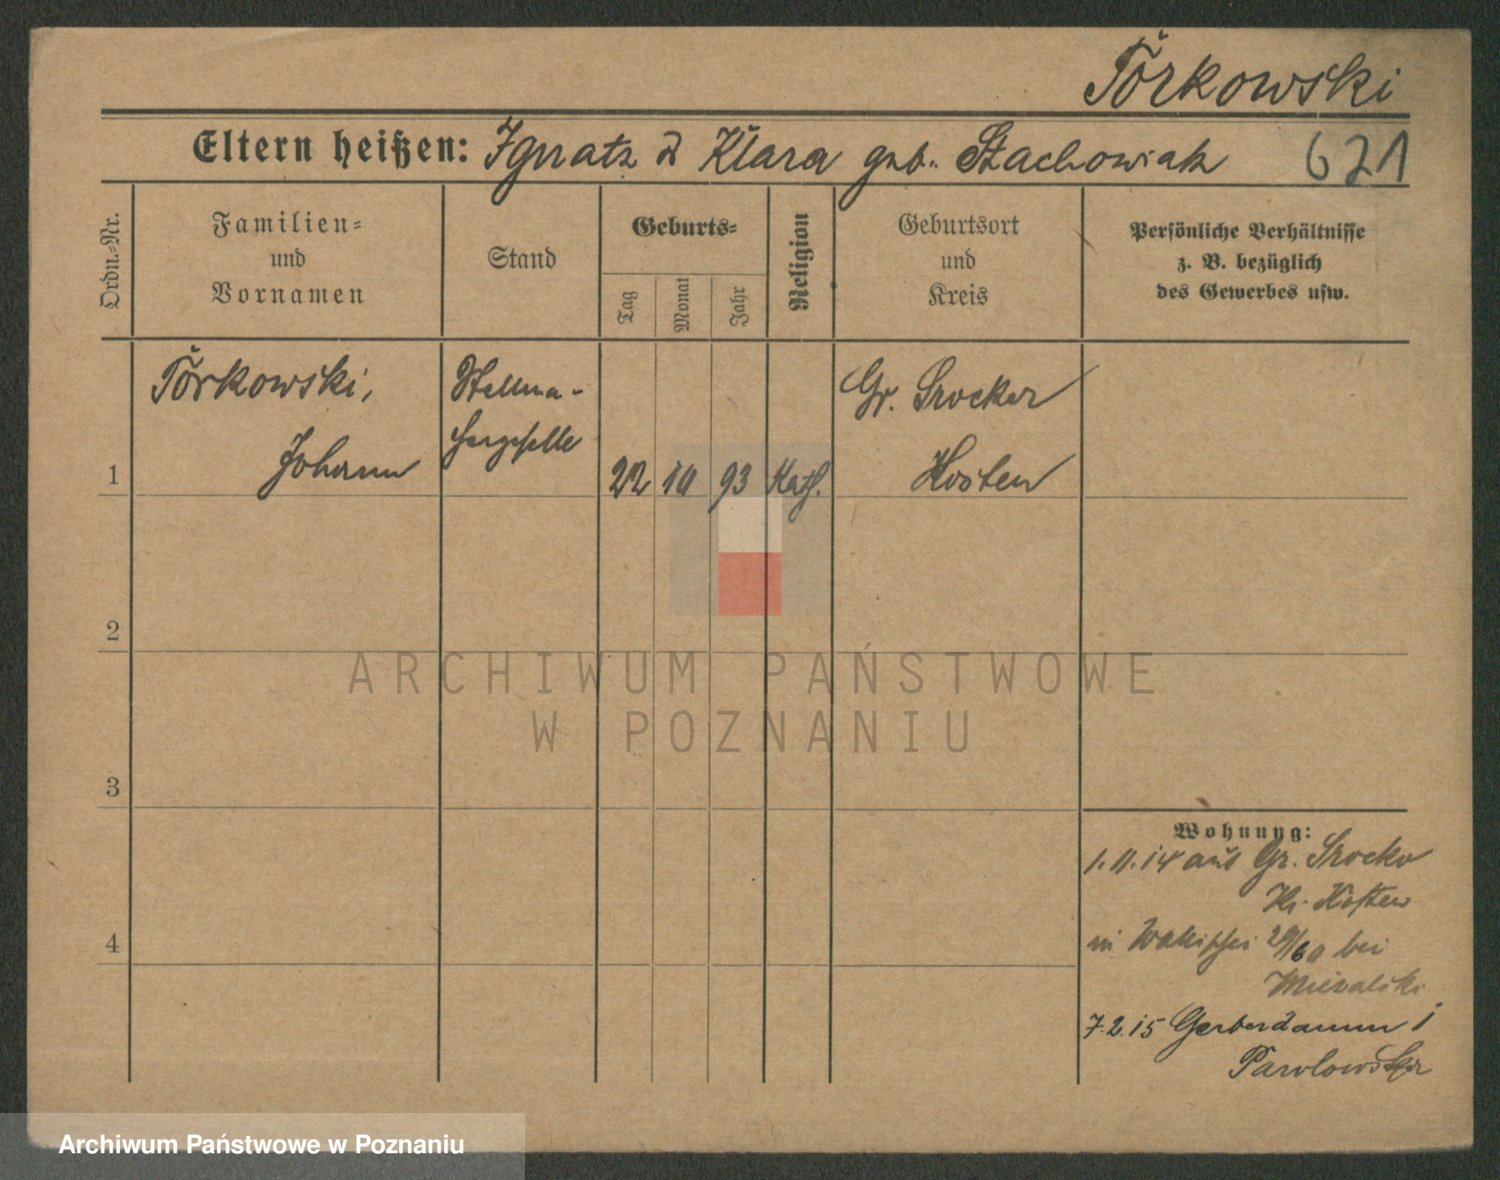 Törkowski
Eltern heißen: Ignatz & Klara geb. Stachowiak 621
Ordn.-Nr.
Familien-
und
Vornamen
Stand
Geburts-
Tag
Monat
Jahr
Religion
Geburtsort
und
Kreis
Persönliche Verhältnisse
z. B. bezüglich
des Gewerbes usw.
1
Törkowski,
Johann
Stellma-
chergeselle
22 10 93 Kath.
Gr. Srocker
Kosten
2
3
4
Wohnung:
1.11.14 aus Gr. Srocko
Kr. Kosten
in bei
7.2.15 Gerberdamm 1
ARCHIWUM PAŃSTWOWE
W POZNANIU
Archiwum Państwowe w Poznaniu